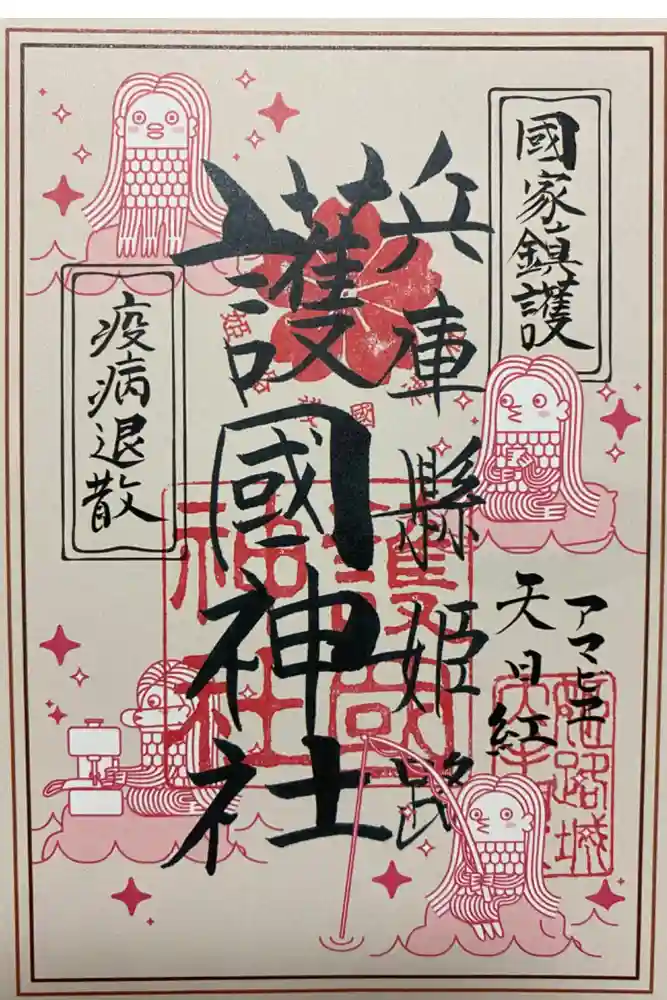 國家鎮護
兵庫縣姫路
護國神社
疫病退散
アマビエ
天日紅
護國
神社
姫路城